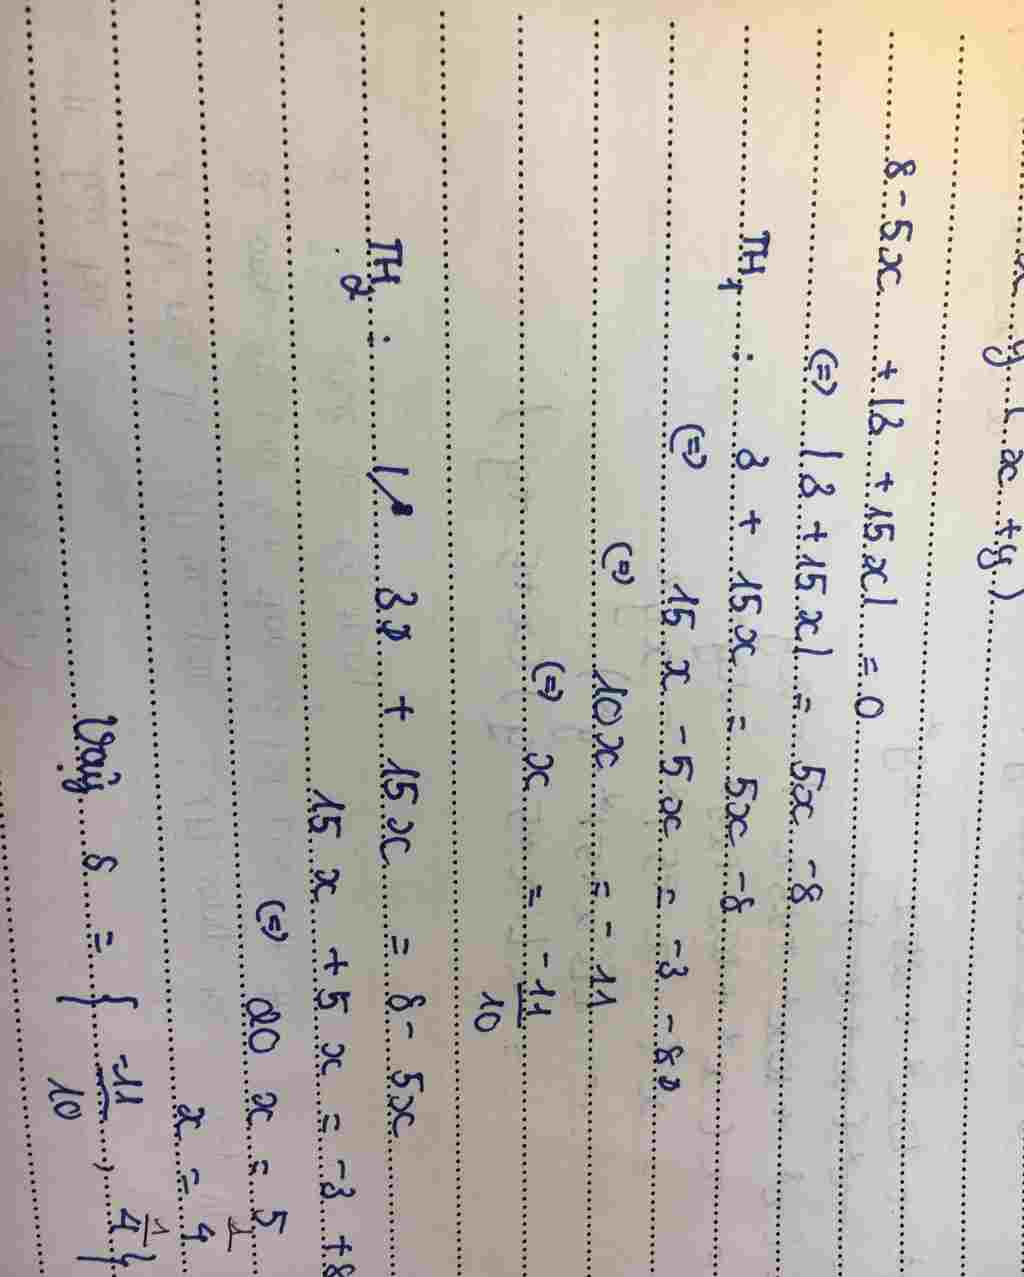 y ( x + y )
8 - 5x + |3 + 15x| = 0
(=) |3 + 15x| = 5x - 8
TH1 : 3 + 15x = 5x - 8
(=) 15x - 5x = -3 - 8
(=) 10x = -11
(=) x = -11/10
TH2 : 3 + 15x = 8 - 5x
15x + 5x = -3 + 8
(=) 20x = 5
x = 1/4
Vậy S = { -11/10 , 1/4 }